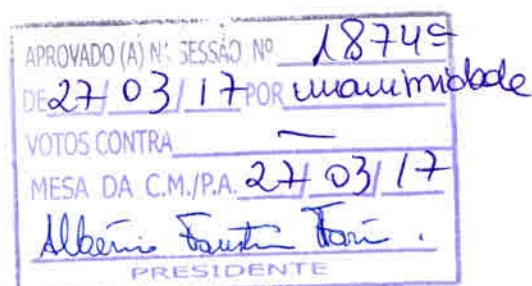 APROVADO (A) Nª SESSÃO Nº 1874ª
DE 27/03/17 POR unanimidade
VOTOS CONTRA —
MESA DA C.M./P.A. 27/03/17
Albênio Faustin Fari .
PRESIDENTE